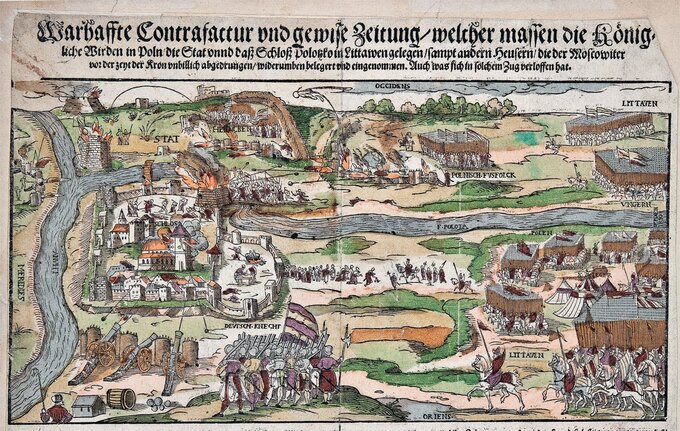 Warhaffte Contrafactur vnd gewise Zeitung/welcher massen die König-
liche Wirden in Poln die Stat vnnd daß Schloß Polotzko in Littawen gelegen/sampt andern Heusern/die der Moscowiter
vor der zeyt der Kron vnbillich abgedrungen/widerumben belegert vnd eingenommen. Auch was sich in solchem Zug verloffen hat.
OCCIDENS
LITTAVEN
STAT
POLNISCH FVSFOLCK
VNGERN
F. POLOTA
POLEN
MERIDIES
DEVTSCH KNECHT
LITTAVEN
ORIENS